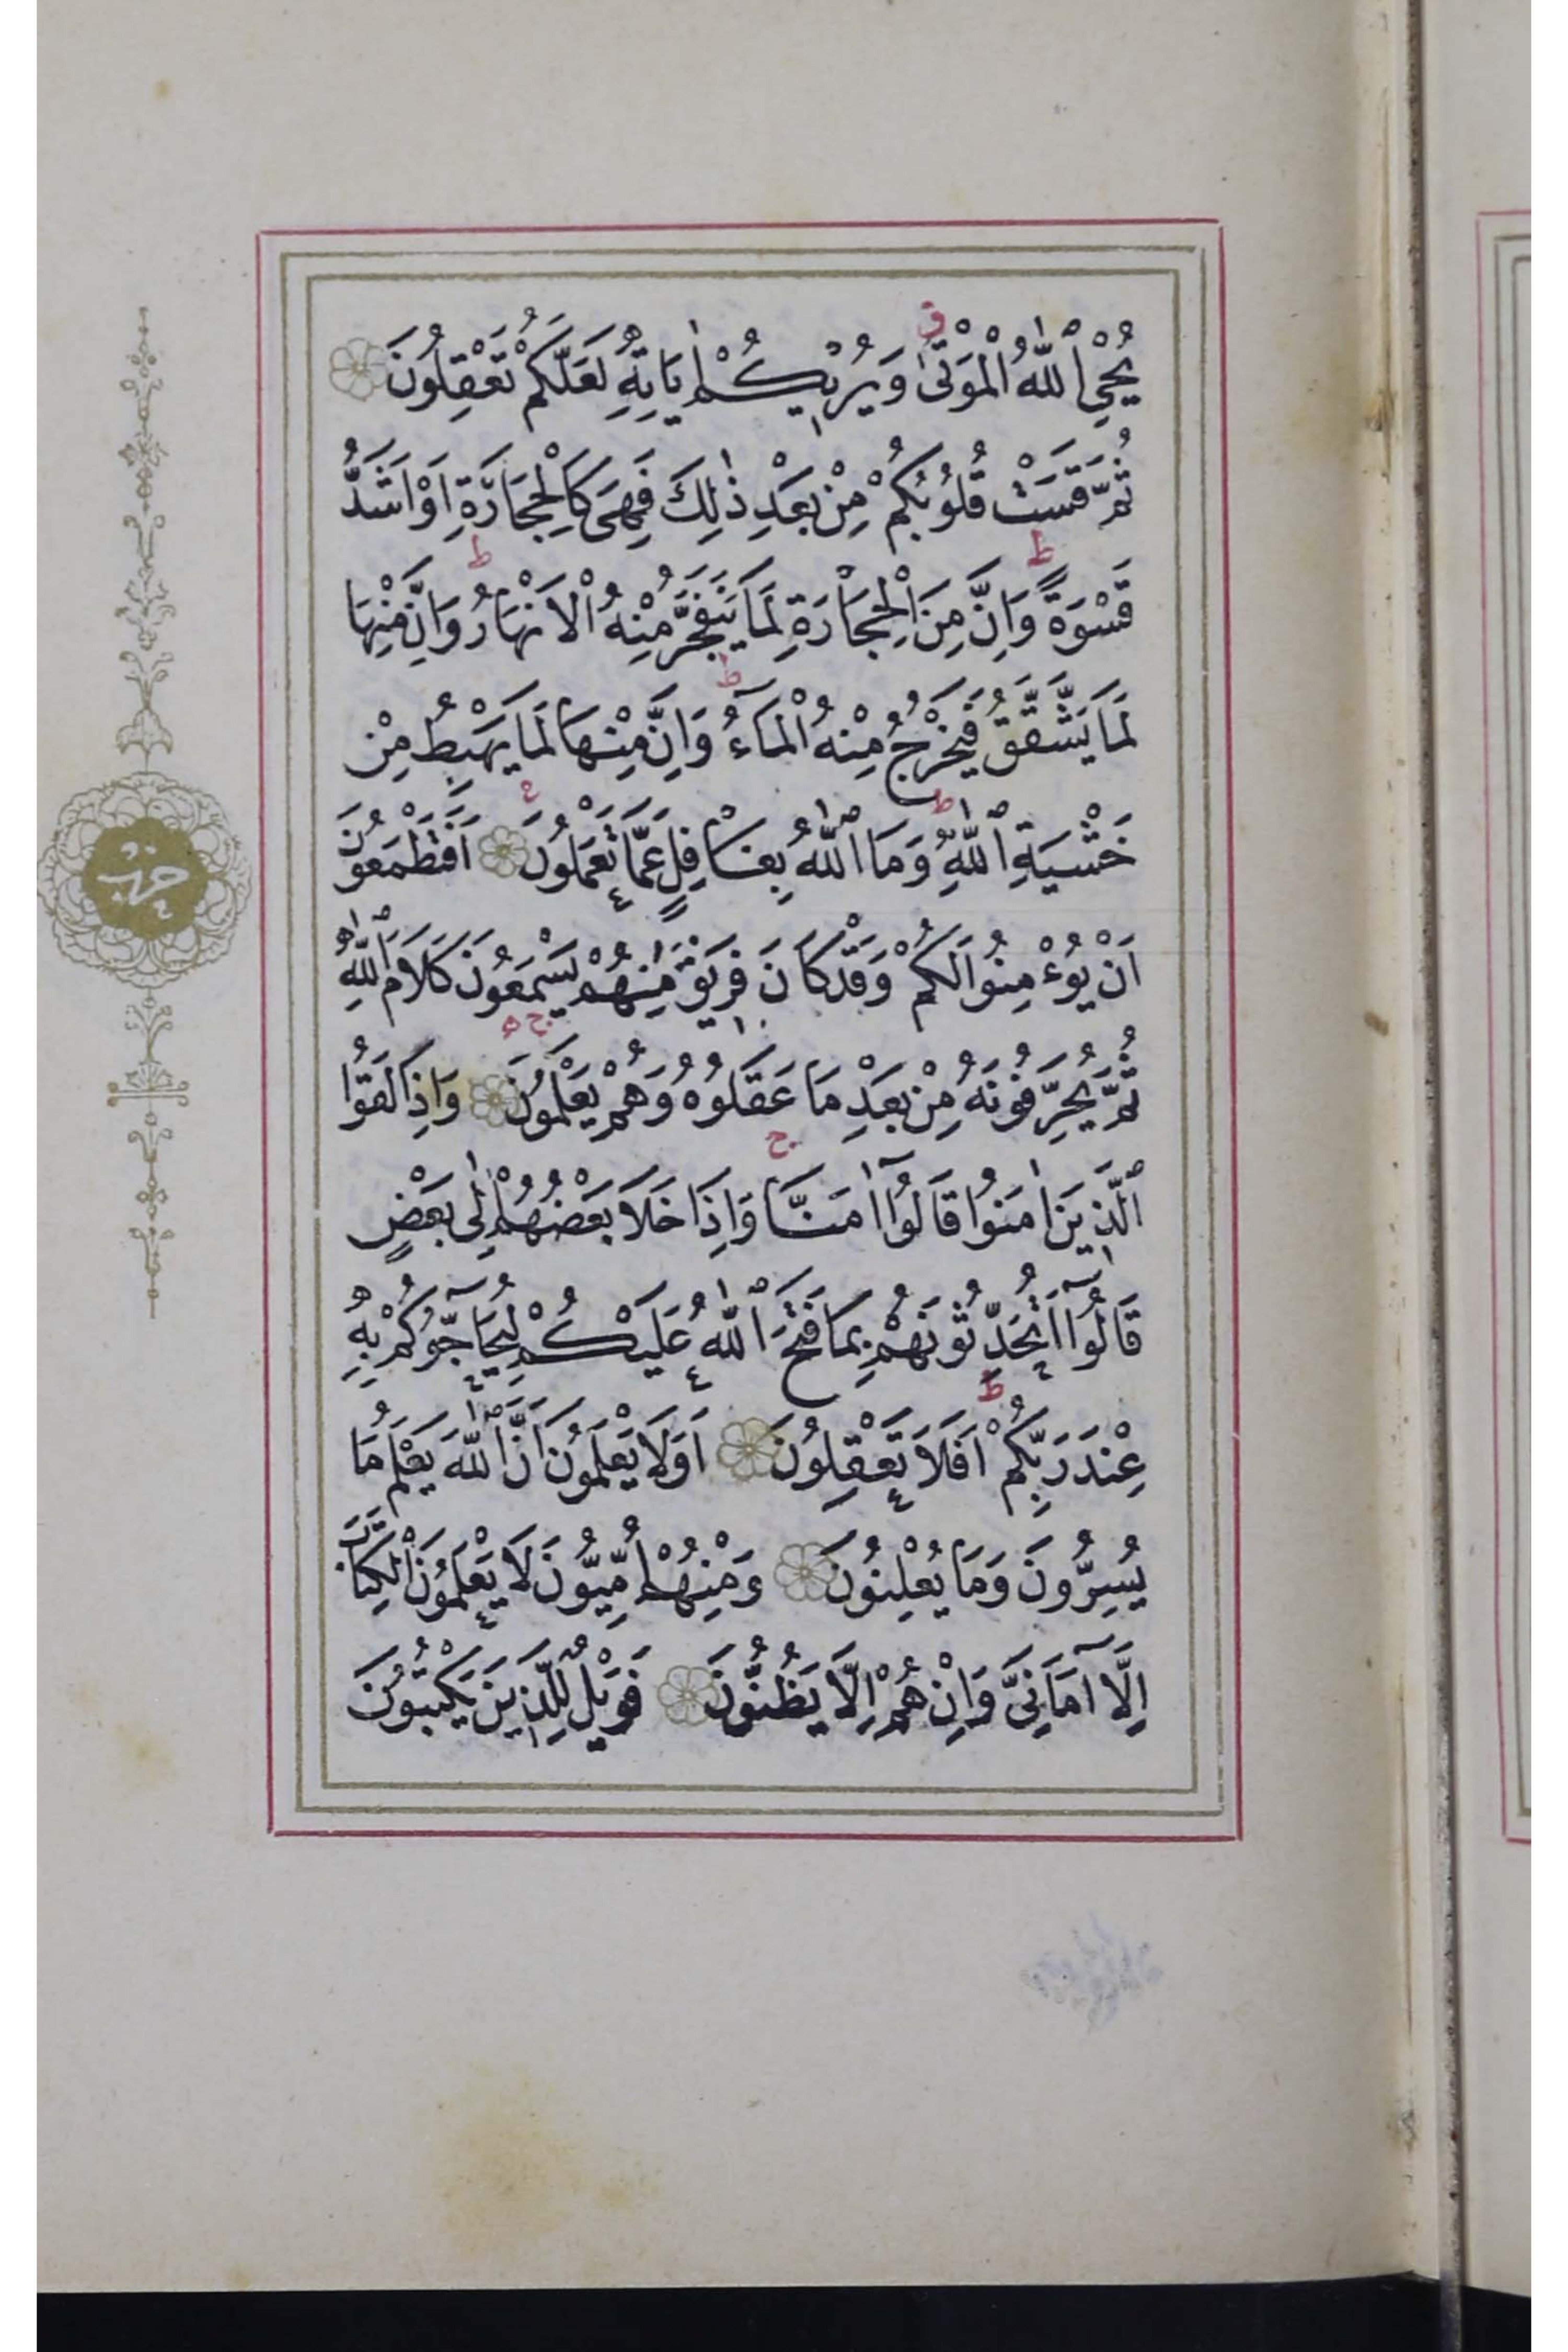 يُحْيِ ٱللّٰهُ الْمَوْتٰى ق وَيُر۪يكُمْ اٰيَاتِه۪ لَعَلَّكُمْ تَعْقِلُونَ
ثُمَّ قَسَتْ قُلُوبُكُمْ مِنْ بَعْدِ ذٰلِكَ فَهِىَ كَالْحِجَارَةِ اَوْ اَشَدُّ
قَسْوَةً ط وَاِنَّ مِنَ الْحِجَارَةِ لَمَا يَتَفَجَّرُ مِنْهُ الْاَنْهَارُ ط وَاِنَّ مِنْهَا
لَمَا يَشَّقَّقُ فَيَخْرُجُ مِنْهُ الْمَٓاءُ ط وَاِنَّ مِنْهَا لَمَا يَهْبِطُ مِنْ
خَشْيَةِ ٱللّٰهِ ط وَمَا ٱللّٰهُ بِغَافِلٍ عَمَّا تَعْمَلُونَ ع اَفَتَطْمَعُونَ
اَنْ يُؤْمِنُوا لَكُمْ وَقَدْ كَانَ فَر۪يقٌ مِنْهُمْ يَسْمَعُونَ كَلَامَ ٱللّٰهِ
ثُمَّ يُحَرِّفُونَهُ مِنْ بَعْدِ مَا عَقَلُوهُ وَهُمْ يَعْلَمُونَ ج ه وَاِذَا لَقُوا
ٱلَّذ۪ينَ اٰمَنُوا قَالُٓوا اٰمَنَّا ج وَاِذَا خَلَا بَعْضُهُمْ اِلٰى بَعْضٍ
قَالُٓوا اَتُحَدِّثُونَهُمْ بِمَا فَتَحَ ٱللّٰهُ عَلَيْكُمْ لِيُحَٓاجُّوكُمْ بِه۪
عِنْدَ رَبِّكُمْ ط اَفَلَا تَعْقِلُونَ اَوَلَا يَعْلَمُونَ اَنَّ ٱللّٰهَ يَعْلَمُ مَا
يُسِرُّونَ وَمَا يُعْلِنُونَ وَمِنْهُمْ اُمِّيُّونَ لَا يَعْلَمُونَ الْكِتَابَ
اِلَّٓا اَمَانِىَّ وَاِنْ هُمْ اِلَّا يَظُنُّونَ فَوَيْلٌ لِلَّذ۪ينَ يَكْتُبُونَ
حزب